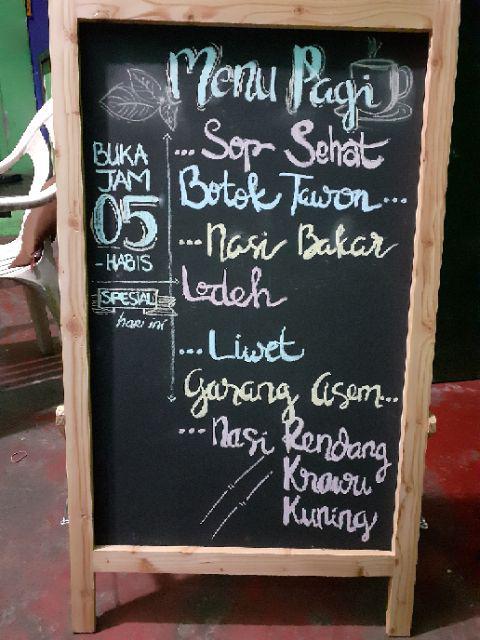 Menu Pagi
BUKA
JAM
05
-HABIS
SPESIAL
hari ini
...Sop Sehat
Botok Tawon...
...Nasi Bakar
Lodeh
...Liwet
Garang Asem...
...Nasi Rendang
Krawu
Kuning